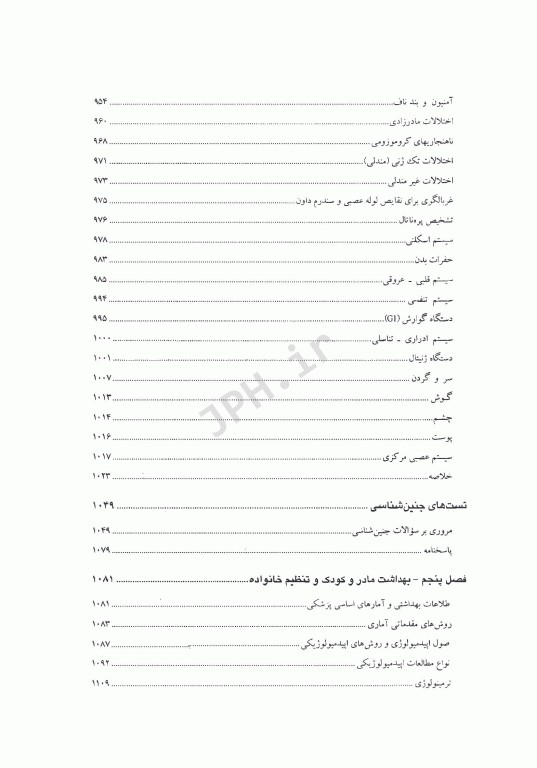 آمنیون و بند ناف ........ ۹۵۴
اختلالات مادرزادی ........ ۹۶۰
ناهنجاریهای کروموزومی ........ ۹۶۸
اختلالات تک ژنی (مندلی) ........ ۹۷۱
اختلالات غیر مندلی ........ ۹۷۳
غربالگری برای نقایص لوله عصبی و سندرم داون ........ ۹۷۵
تشخیص پره‌ناتال ........ ۹۷۶
سیستم اسکلتی ........ ۹۷۸
حفرات بدن ........ ۹۸۳
سیستم قلبی - عروقی ........ ۹۸۵
سیستم تنفسی ........ ۹۹۴
دستگاه گوارش (GI) ........ ۹۹۵
سیستم ادراری - تناسلی ........ ۱۰۰۰
دستگاه ژنیتال ........ ۱۰۰۱
سر و گردن ........ ۱۰۰۷
گوش ........ ۱۰۱۳
چشم ........ ۱۰۱۴
پوست ........ ۱۰۱۶
سیستم عصبی مرکزی ........ ۱۰۱۷
خلاصه ........ ۱۰۲۳
تست‌های جنین‌شناسی ........ ۱۰۴۹
مروری بر سؤالات جنین‌شناسی ........ ۱۰۴۹
پاسخنامه ........ ۱۰۷۹
فصل پنجم - بهداشت مادر و کودک و تنظیم خانواده ........ ۱۰۸۱
طلاعات بهداشتی و آمارهای اساسی پزشکی ........ ۱۰۸۱
روش‌های مقدماتی آماری ........ ۱۰۸۳
صول اپیدمیولوژی و روش‌های اپیدمیولوژیکی ........ ۱۰۸۷
نواع مطالعات اپیدمیولوژیکی ........ ۱۰۹۲
ترمینولوژی ........ ۱۱۰۹
JPH.ir